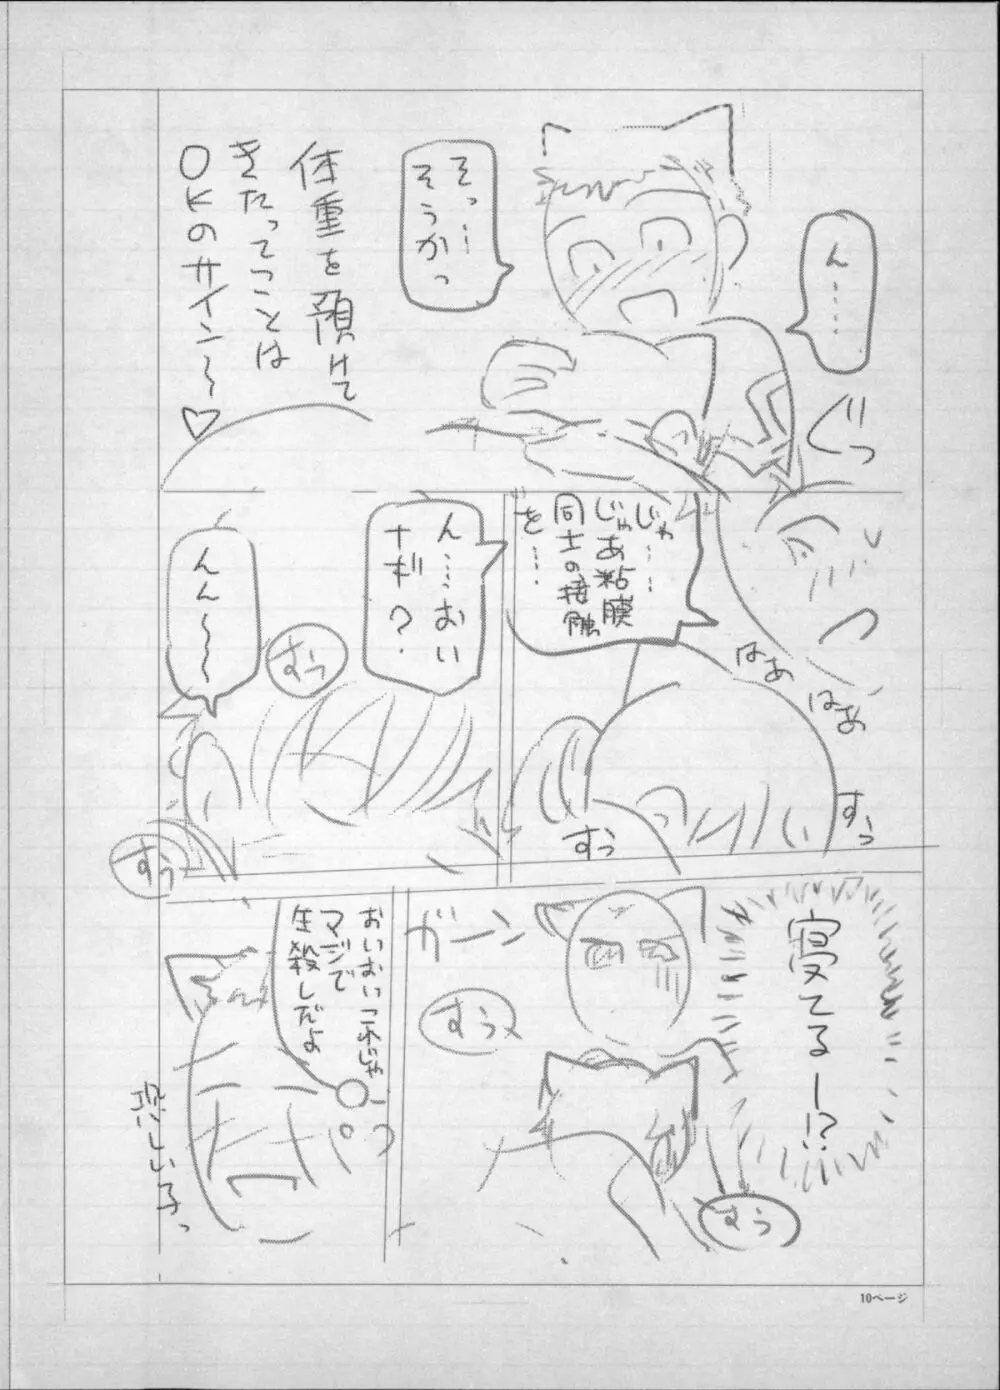 ん……
ぐっ
そっ…
そうかっ
体重を預けて
きたってことは
OKのサイン～～♡
じゃ……
じゃあ粘膜
同士の接触
を…
はあ
はあ
すぅ
すぅ
ん…おい
ナギ？
すぅ
んん～～～
すぅ
寝てるー!?
すぅ
ガーン
すぅ
おいおいこれじゃ
マジで
生殺しだよ